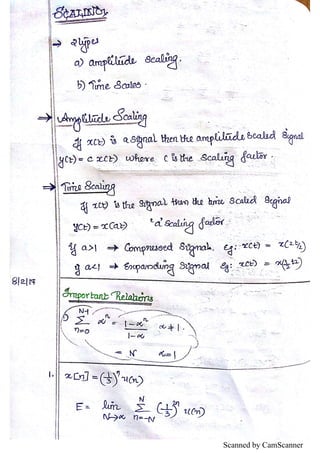 SCALING
→ 2 types
a) amplitude scaling.
b) Time Scales.
→ Amplitude Scaling
If x(t) is a signal then the amplitude scaled signal
y(t) = c x(t) where c is the scaling factor.
→ Time Scaling
If x(t) is the signal then the time scaled signal
y(t) = x(at) 'a' scaling factor.
If a>1 → Compressed Signal. Eg: x(t) =
If a<1 → Expanding Signal Eg: x(t) =
8/2/17
Important Relations
1) N-1 Σ n=0 αⁿ = 1-αⁿ / 1-α α≠1.
= N α=1
1. x[n] = (1/3)ⁿ u(n)
E = lim N→∝ N Σ n=-N (1/3)²ⁿ u(n)
Scanned by CamScanner